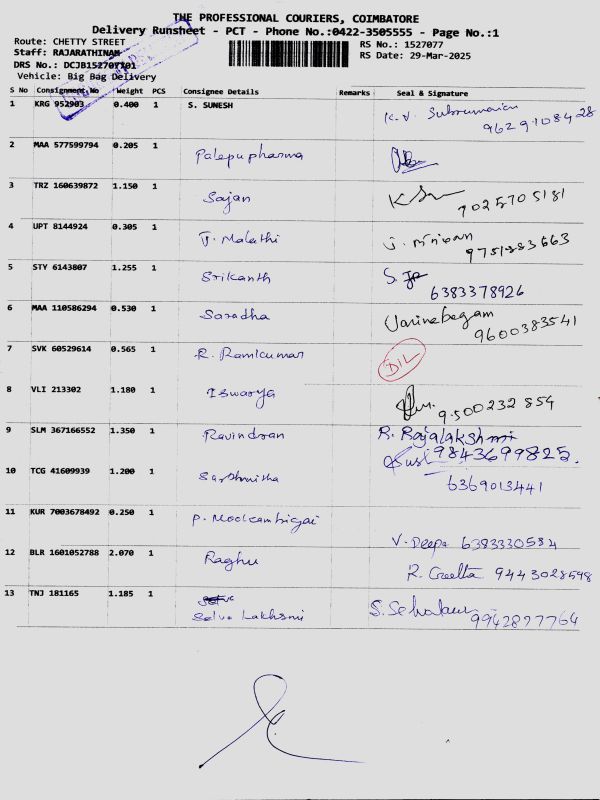 THE PROFESSIONAL COURIERS, COIMBATORE
Delivery Runsheet - PCT - Phone No.:0422-3505555 - Page No.:1
Route: CHETTY STREET
RS No.: 1527077
Staff: RAJARATHINAM
RS Date: 29-Mar-2025
DRS No.: DCJB152707701
Vehicle: Big Bag Delivery
S No Consignment No Weight PCS Consignee Details Remarks Seal & Signature
1 KRG 952903 0.400 1 S. SUMESH K.V. Subramanian
9629108428
2 MAA 577599794 0.205 1 Palepu pharma
3 TRZ 160639872 1.150 1 Sajan
7025705181
4 UPT 8144924 0.305 1 T. Malathi
9751383663
5 STY 6143807 1.255 1 Srikanth
6383378926
6 MAA 110586294 0.530 1 Saradha
9600383541
7 SVK 60529614 0.565 1 R. Ramkumar DIL
8 VLI 213302 1.180 1 Iswarya 9500232854
9 SLM 367166552 1.350 1 Ravindran R. Rajalakshmi
9843699825.
10 TCG 41609939 1.200 1 6369013441
11 KUR 7003678492 0.250 1 P. Mookambigai
V. Deepa 6383330534
12 BLR 1601052788 2.070 1 Raghu
R. Geetha 9443028598
13 TNJ 181165 1.185 1 Selva Lakhsmi
9942897764